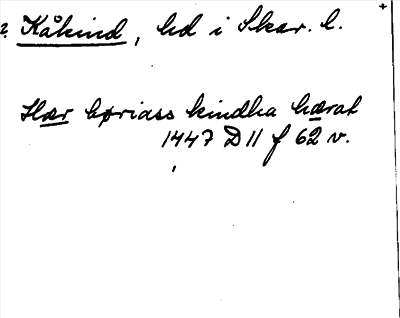 2. Kåkind, hd i Skar. l.
Hær høriass kindha hærat
1447 D 11 f 62 v.